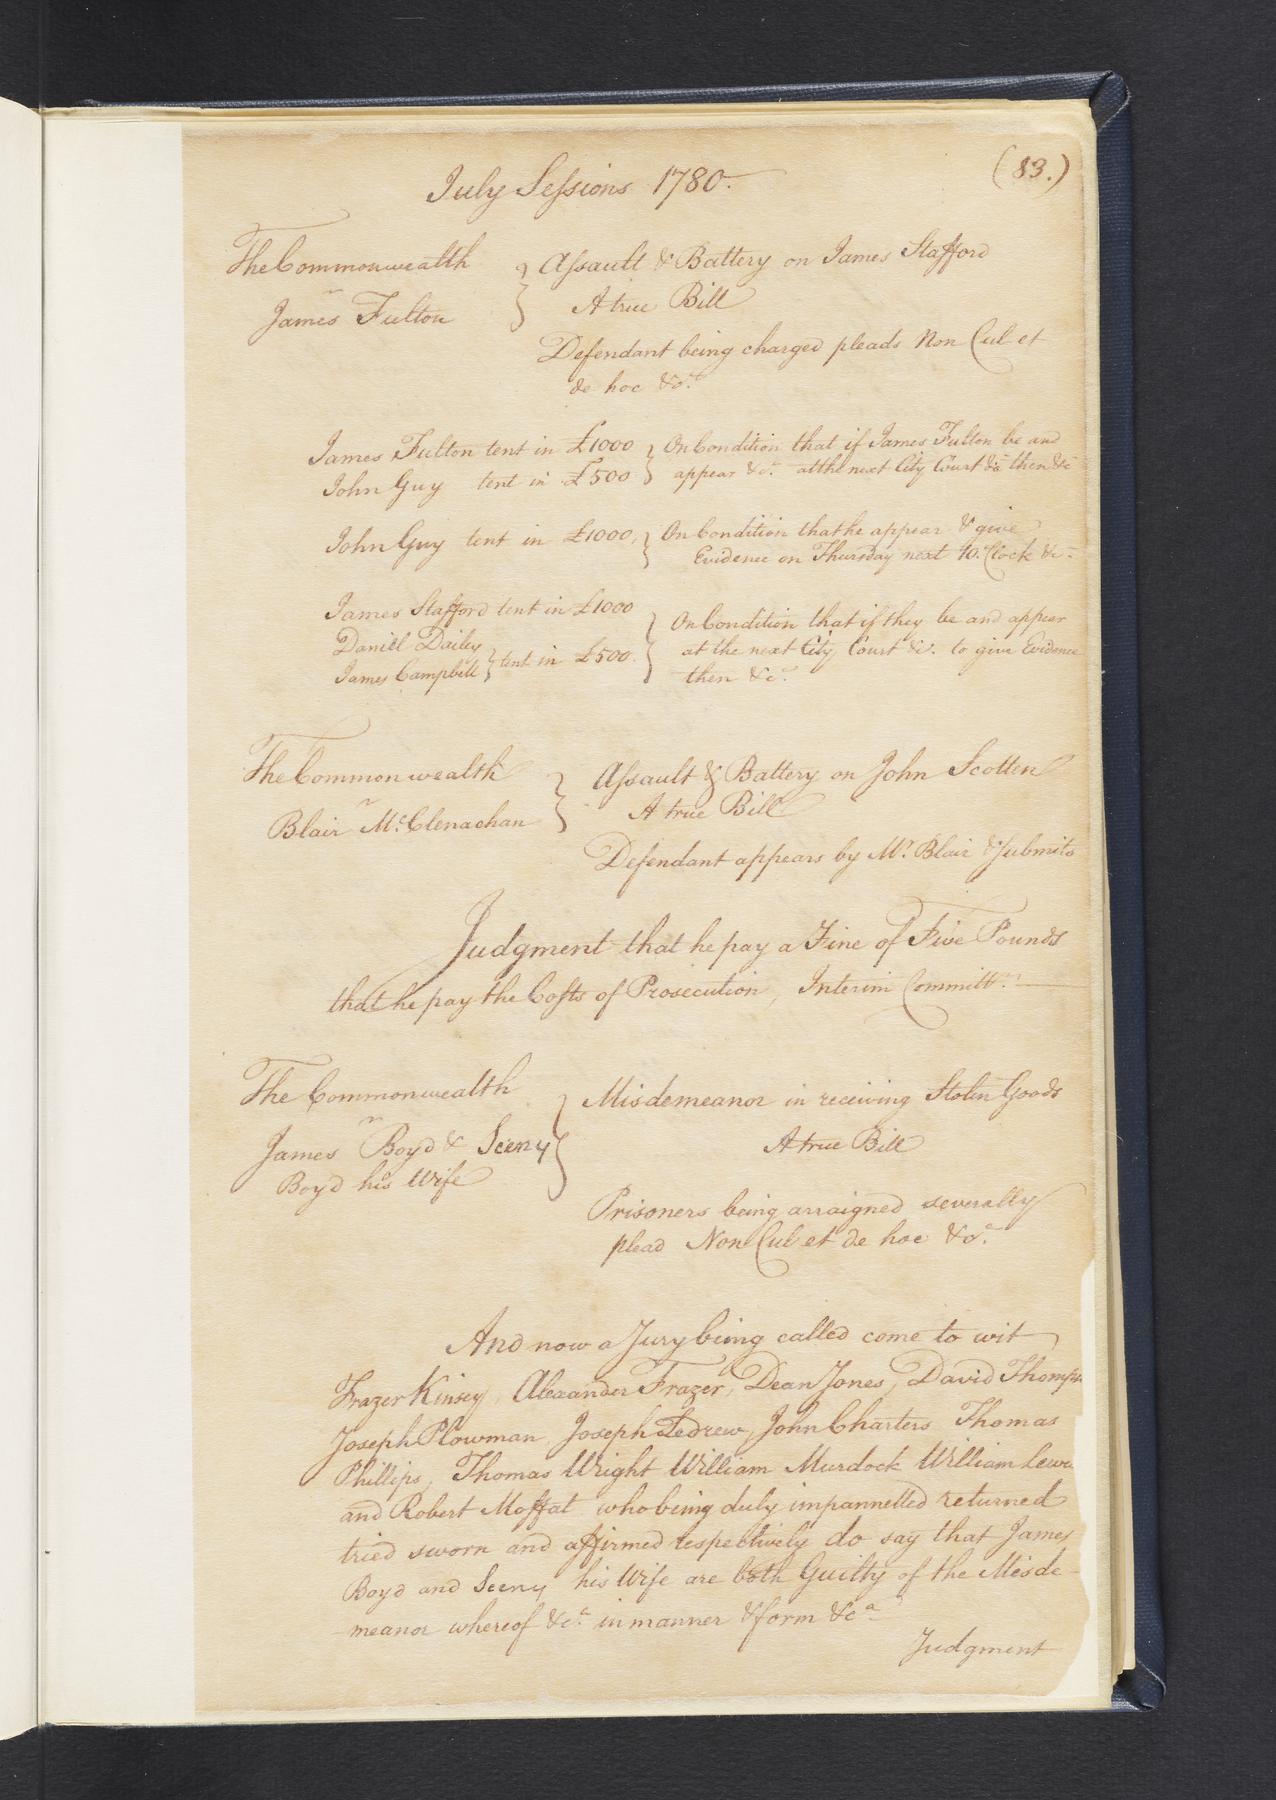 (83.)
July Sessions 1780.
The Commonwealth
vs
James Fulton
Assault & Battery on James Stafford
A true Bill
Defendant being charged pleads Non Cul et
de hoc &c.
James Fulton tent in £1000
John Guy tent in £500
On Condition that if James Fulton be and
appear &c. at the next City Court &c then &c
John Guy tent in £1000,
On Condition that he appear & give
Evidence on Thursday next 10. Clock &c.
James Stafford tent in £1000
Daniel Dailey
James Campbell } tent in £500.
On Condition that if they be and appear
at the next City Court &c. to give Evidence
then &c.
The Commonwealth
vs
Blair McClenachan
Assault & Battery on John Scotten
A true Bill
Defendant appears by Mr. Blair & Submits
Judgment that he pay a Fine of Five Pounds
that he pay the Costs of Prosecution, Interim Committr.
The Commonwealth
vs
James Boyd & Seeny
Boyd his Wife
Misdemeanor in receiving Stolen Goods
A true Bill
Prisoners being arraigned severally
plead Non Cul et de hoc &c.
And now a Jury being called come to wit
Frazer Kinsey, Alexander Frazer, Dean Jones, David Thompson
Joseph Plowman, Joseph Ledrew, John Charters Thomas
Phillips, Thomas Wright William Murdock William Lewis
and Robert Moffat who being duly impannelled returned
tried sworn and affirmed respectively do say that James
Boyd and Seeny his Wife are both Guilty of the Misde-
-meanor whereof &ca. in manner & form &ca.
Judgment